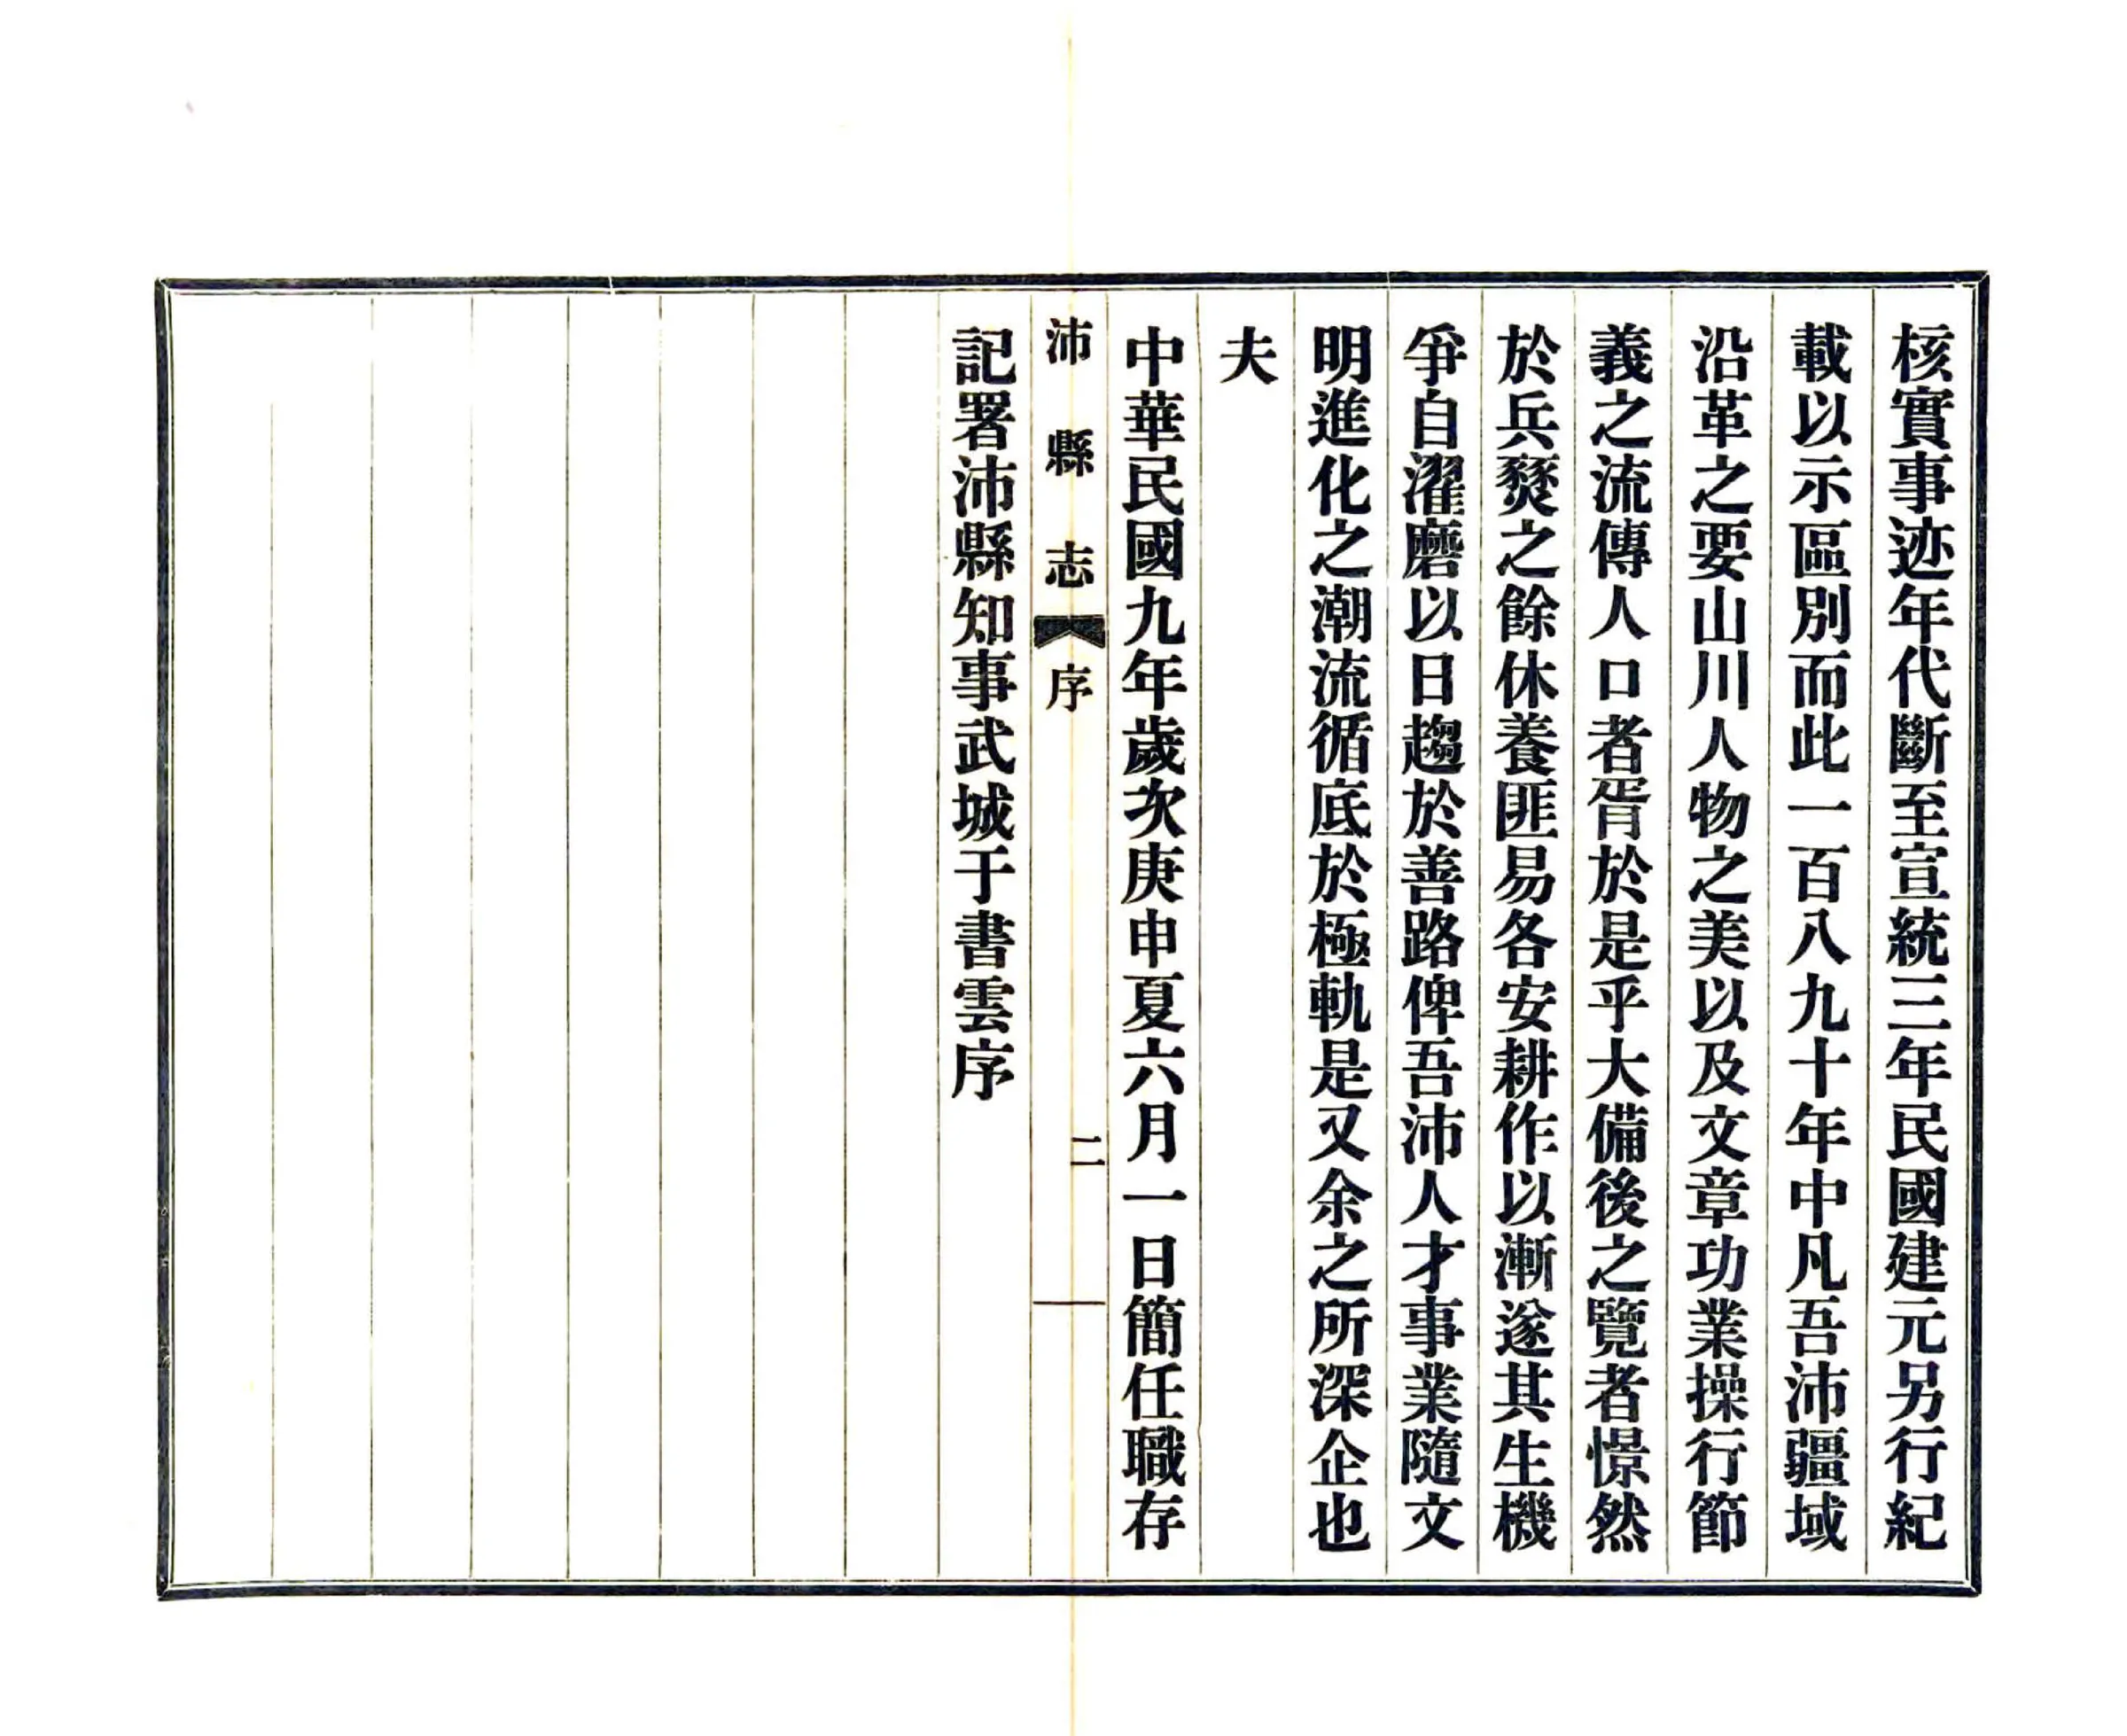 核實事迹年代斷至宣統三年民國建元另行紀
載以示區別而此一百八九十年中凡吾沛疆域
沿革之要山川人物之美以及文章功業操行節
義之流傳人口者胥於是乎大備後之覽者憬然
於兵燹之餘休養匪易各安耕作以漸遂其生機
爭自濯磨以日趨於善路俾吾沛人才事業隨文
明進化之潮流循底於極軌是又余之所深企也
夫
中華民國九年歲次庚申夏六月一日簡任職存
沛縣志 序 二
記署沛縣知事武城于書雲序